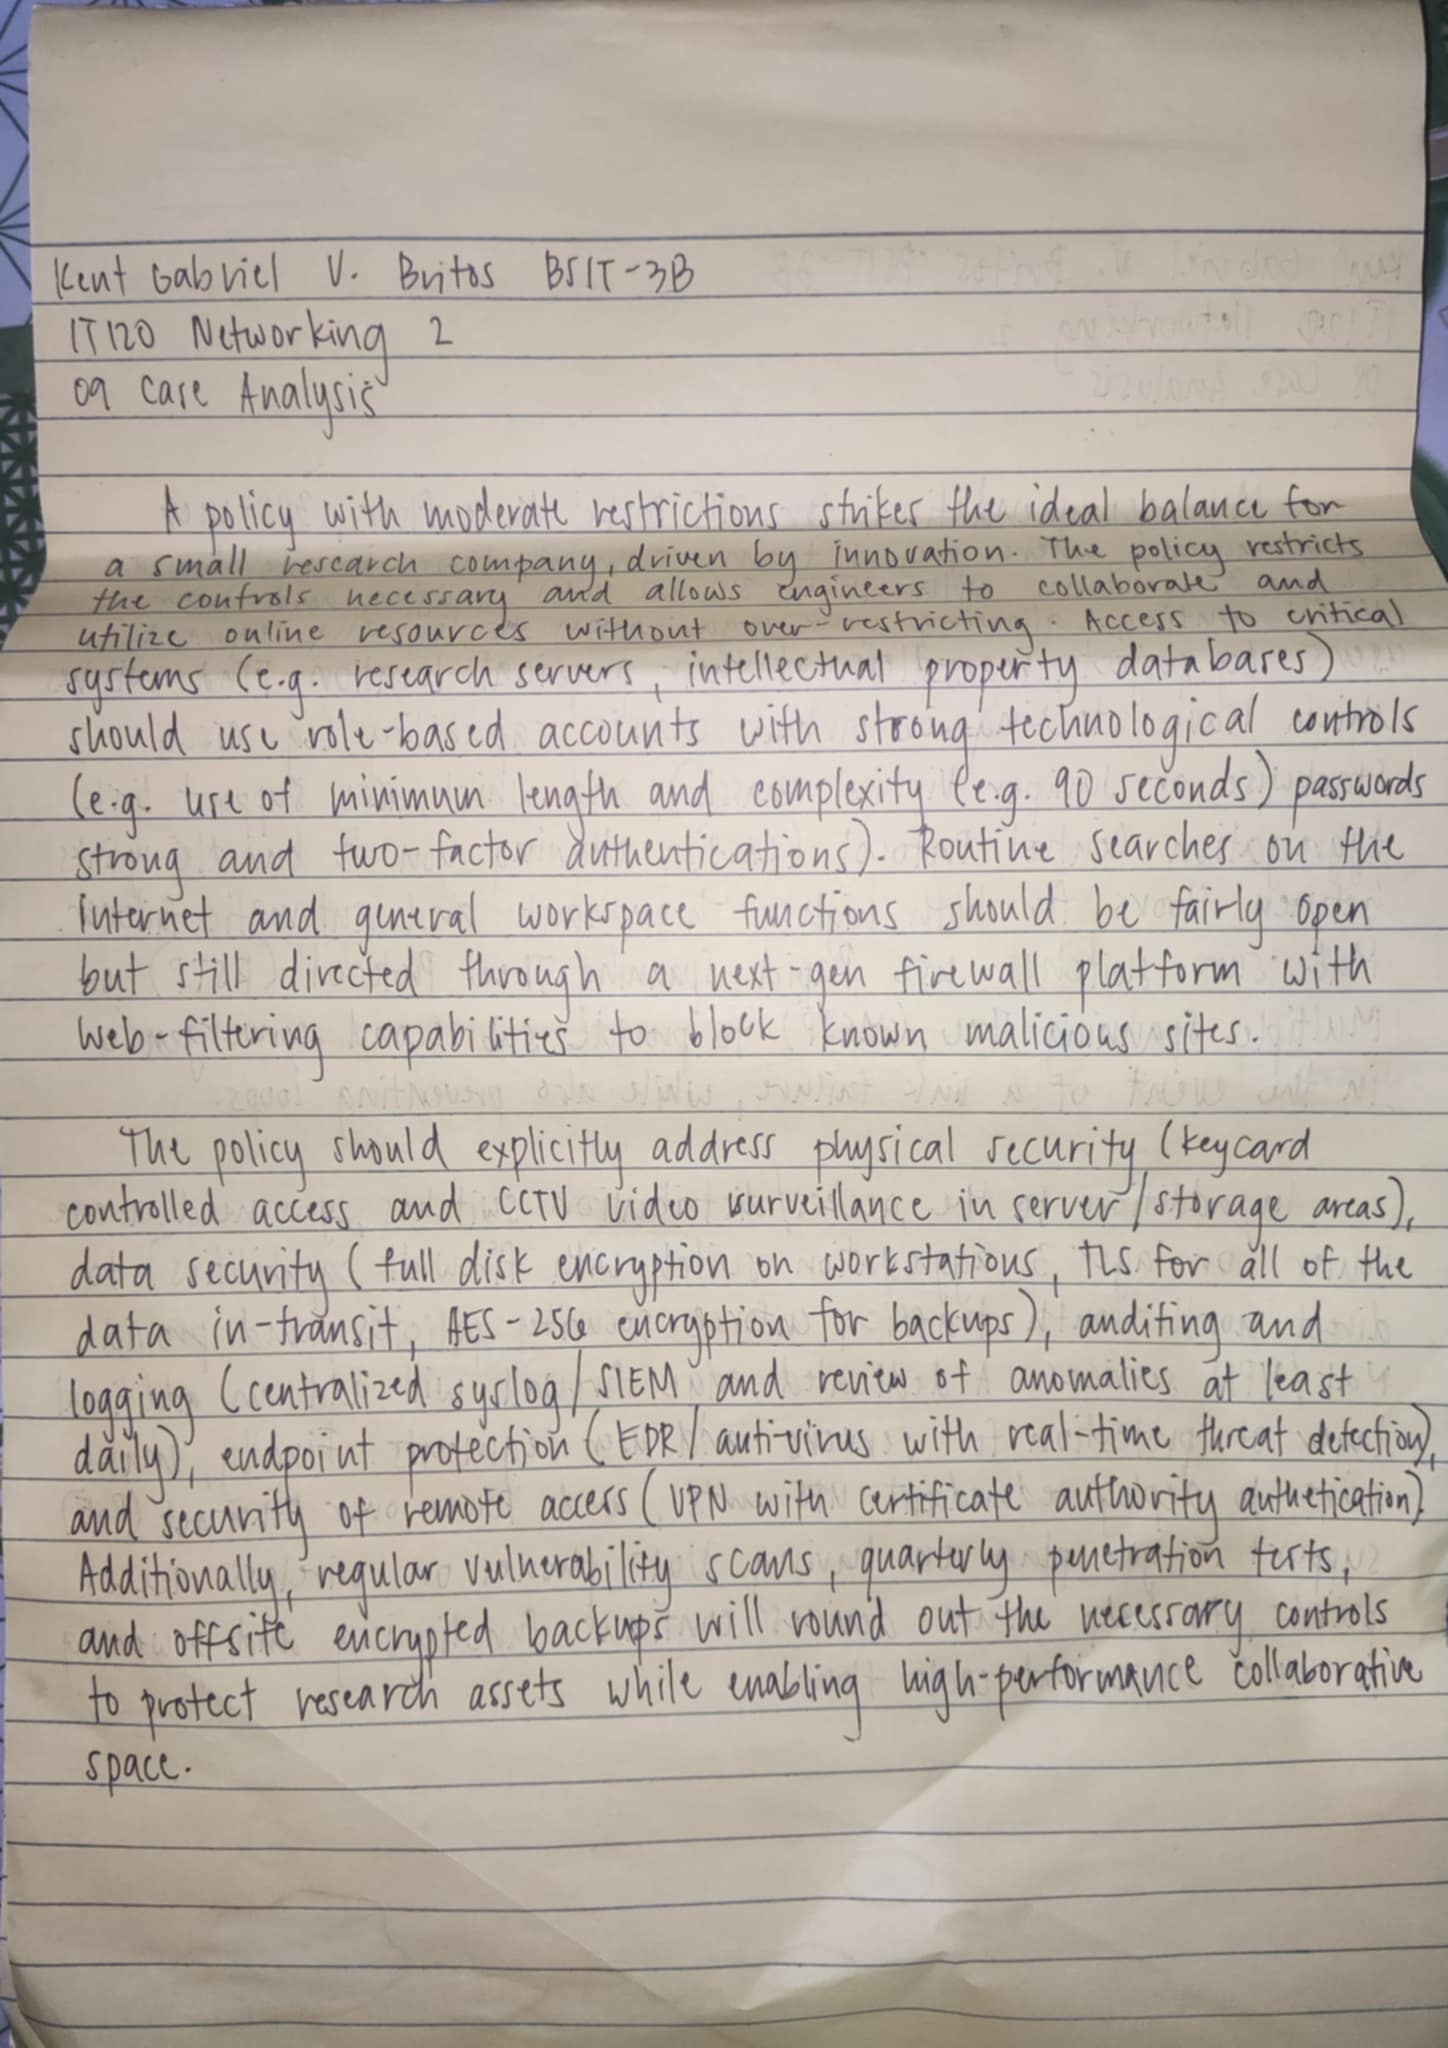 Kent Gabriel V. Britos BSIT-3B
IT120 Networking 2
09 Case Analysis
A policy with moderate restrictions strikes the ideal balance for
a small research company, driven by innovation. The policy restricts
the controls necessary and allows engineers to collaborate and
utilize online resources without over-restricting. Access to critical
systems (e.g. research servers, intellectual property databases)
should use role-based accounts with strong technological controls
(e.g. use of minimum length and complexity (e.g. 90 seconds) passwords
strong and two-factor authentications). Routine searches on the
internet and general workspace functions should be fairly open
but still directed through a next-gen firewall platform with
web-filtering capabilities to block known malicious sites.
The policy should explicitly address physical security (keycard
controlled access and CCTV video surveillance in server/storage areas),
data security (full disk encryption on workstations, TLS for all of the
data in-transit, AES-256 encryption for backups), auditing and
logging (centralized syslog/SIEM and review of anomalies at least
daily), endpoint protection (EDR/anti-virus with real-time threat detection),
and security of remote access (VPN with certificate authority authetication).
Additionally, regular vulnerability scans, quarterly penetration tests,
and offsite encrypted backups will round out the necessary controls
to protect research assets while enabling high-performance collaborative
space.